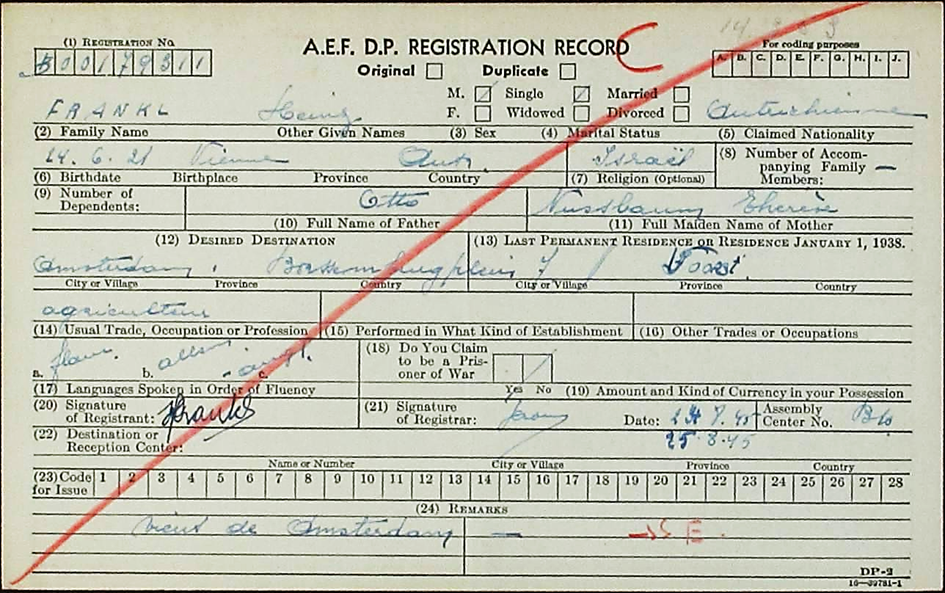 (1) REGISTRATION NO.
A.E.F. D.P. REGISTRATION RECORD
C
For coding purposes
00179311
Original Duplicate
A. B. C. D. E. F. G. H. I. J.
M. Single Married
FRANKL Heinz F. Widowed Divorced Autrichienne
(2) Family Name Other Given Names (3) Sex (4) Marital Status (5) Claimed Nationality
Vienne Autr. Israël (8) Number of Accompanying Family Members: —
(6) Birthdate Birthplace Province Country (7) Religion (Optional)
(9) Number of Dependents: Otto Nussbaum
(10) Full Name of Father (11) Full Maiden Name of Mother
(12) DESIRED DESTINATION (13) LAST PERMANENT RESIDENCE OR RESIDENCE JANUARY 1, 1938.
Amsterdam
City or Village Province Country City or Village Province Country
agriculteur
(14) Usual Trade, Occupation or Profession (15) Performed in What Kind of Establishment (16) Other Trades or Occupations
flam. allem. angl.
a. b. c.
(18) Do You Claim to be a Prisoner of War
(17) Languages Spoken in Order of Fluency Yes No (19) Amount and Kind of Currency in your Possession
(20) Signature of Registrant: (21) Signature of Registrar: Date: Assembly Center No.
25.8.45
(22) Destination or Reception Center:
Name or Number City or Village Province Country
(23) Code for Issue 1 2 3 4 5 6 7 8 9 10 11 12 13 14 15 16 17 18 19 20 21 22 23 24 25 26 27 28
(24) REMARKS
vient de Amsterdam — E.
DP-2
16—39781-1